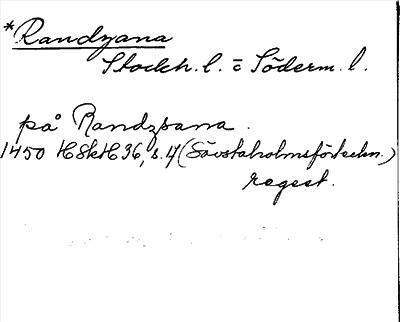 *Randzana
Stockh. l. = Söderm. l.
på Randzsana.
1450 HSkH 36, s. 4 (Sävstaholmsförteckn.)
regest.